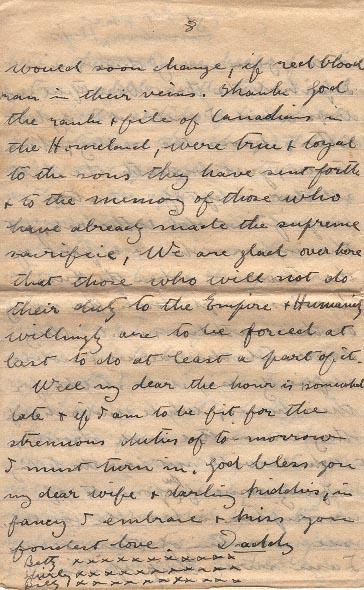 3
would soon change, if red blood
ran in their veins. Thank God
the rank & file of Canadians in
the Homeland, were true & loyal
to the sons they have sent forth
& to the memory of those who
have already made the supreme
sacrifice, We are glad over here
that those who will not do
their duty to the Empire & Humanity
willingly are to be forced at
last to do at least a part of it.
Well my dear the hour is somewhat
late & if I am to be fit for the
strenuous duties of to-morrow
I must turn in. God bless you
my dear wife & darling kiddies, in
fancy I embrace & kiss you
fondest love Daddy
Betty x x x x x x x x x x x
x x x x x x x x x x x
Billy x x x x x x x x x x x